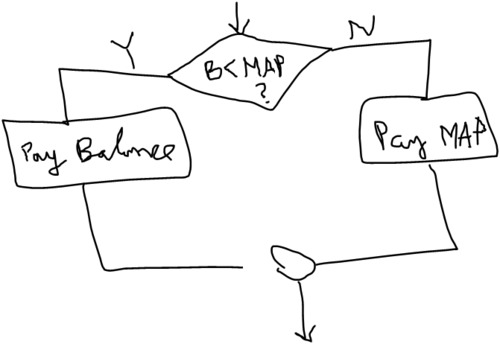 Y
N
B<MAP
?
Pay Balance
Pay MAP